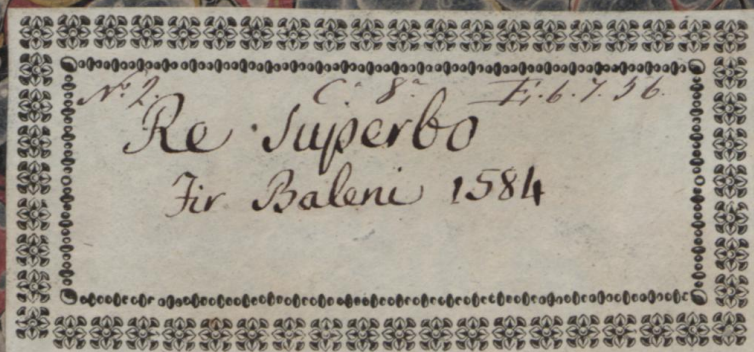 Nº 2. C.ª 8.ª E. 6. 7. 56.
Re Superbo
Fir Baleni 1584